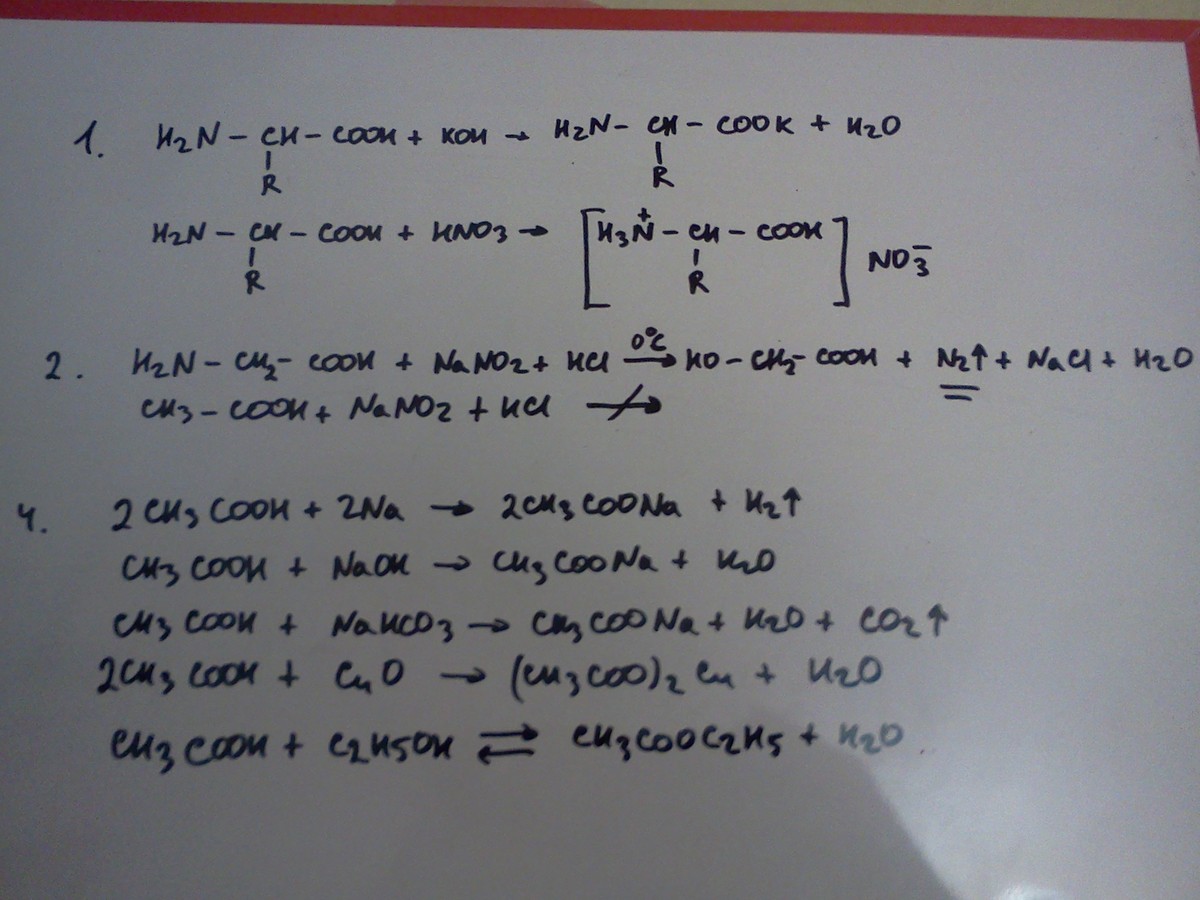 1. H2N - CH - COOH + KOH → H2N - CH - COOK + H2O
R R
H2N - CH - COOH + HNO3 → [H3N+ - CH - COOH] NO3-
R R
2. H2N - CH2 - COOH + NaNO2 + HCl 0°C → HO - CH2 - COOH + N2↑ + NaCl + H2O
CH3 - COOH + NaNO2 + HCl ↛
4. 2CH3COOH + 2Na → 2CH3COONa + H2↑
CH3COOH + NaOH → CH3COONa + H2O
CH3COOH + NaHCO3 → CH3COONa + H2O + CO2↑
2CH3COOH + CuO → (CH3COO)2Cu + H2O
CH3COOH + C2H5OH ⇌ CH3COOC2H5 + H2O